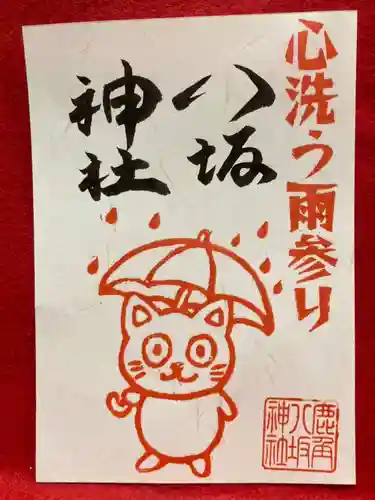 心洗う雨参り
八坂
神社
鹿角
八坂
神社